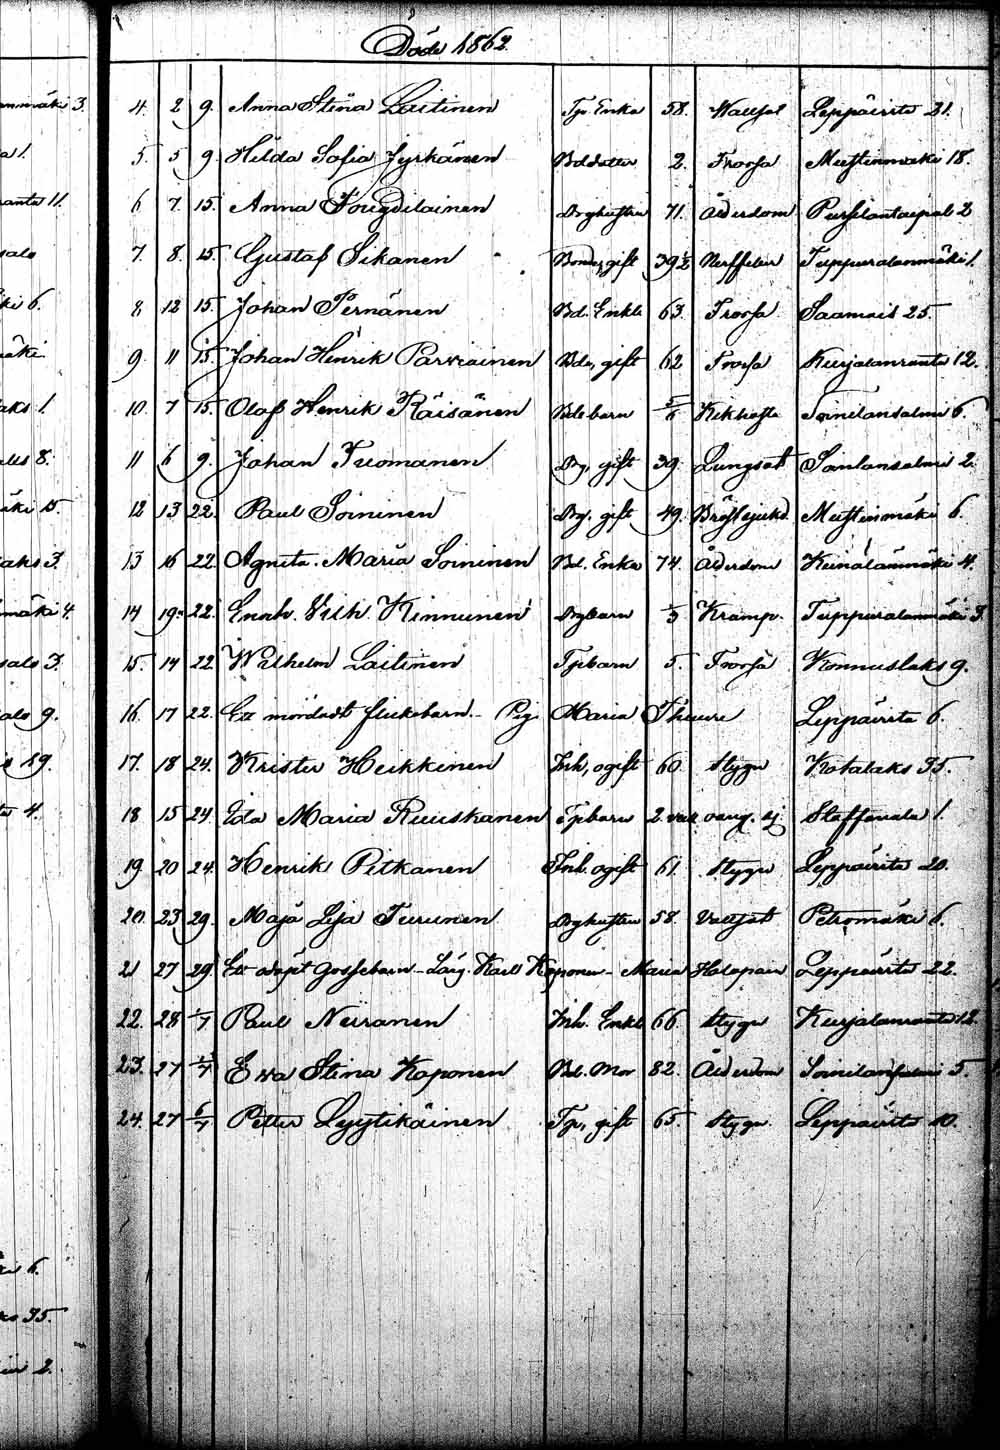 Döde 1862.
4. 2 9. Anna Stina Laitinen Tp. Enka 58. Wattsot Leppävirta 21.
5. 5 9. Hilda Sofia Jyrkänen Bd dotter 2. Frossa Mustinmäki 18.
6 7. 15. Anna Fougdilainen Drghustru 71. Ålderdom Pursilantaipal 2
7. 8. 15. Gustaf Sikanen Bonde, gift 39½ Nerffeber Tuppuralanmäki 1.
8 12 15. Johan Pernänen Bd. Enkl. 63. Frossa Saamais 25.
9. 11 15. Johan Henrik Parviainen Bde, gift 62 Frossa Kurjalanranta 12.
10. 7 15. Olof Henrik Räisänen Bdebarn 5/6 Kikhosta Soinilansalmi 6.
11 6 9. Johan Tuomanen Drg, gift 39. Lungsot Soinlansalmi 2.
12 13 22. Paul Soininen Drg. gift 49. Bröstsjukd. Mustinmäki 6.
13 16 22. Agneta Maria Soininen Bd. Enka 74. Ålderdom 4.
14 19. 22. Enoch Vilh. Kinnunen Drgbarn Kramp. Tuppuralanmäki 3.
15. 14 22 Wilhelm Laitinen Tpbarn 5. Frossa Konnuslaks 9.
16. 17 22. Ett mördadt flickebarn. Pig. Maria Leppävirta 6.
17. 18 24. Krister Heikkinen Inh, ogift 60 Stygn Kotalaks 35.
18 15 24. Ida Maria Ruuskanen Tpbarn 2 veck oang. sj Staffansla 1.
19. 20 24. Henrik Pitkanen Inh. ogift 61. Stygn Leppävirta 20.
20. 23 29. Maja Lisa Turunen Drghustru 58. Vattsot Petromäki 6.
21 27 29. Ett odöpt gossebarn - Lösg. Karl Koponen - Maria Holopain Leppävirta 22.
22. 28 1/7 Paul Neiranen Inh. Enkl 66. Stygn Kurjalanranta 12.
23. 27 /7 Eva Stina Koponen Bd. Mor 82. Ålderdom Soinilansalmi 5.
24. 27 6/7 Petter Lyytikäinen Tp, gift 65. Stygn. Leppävirta 10.